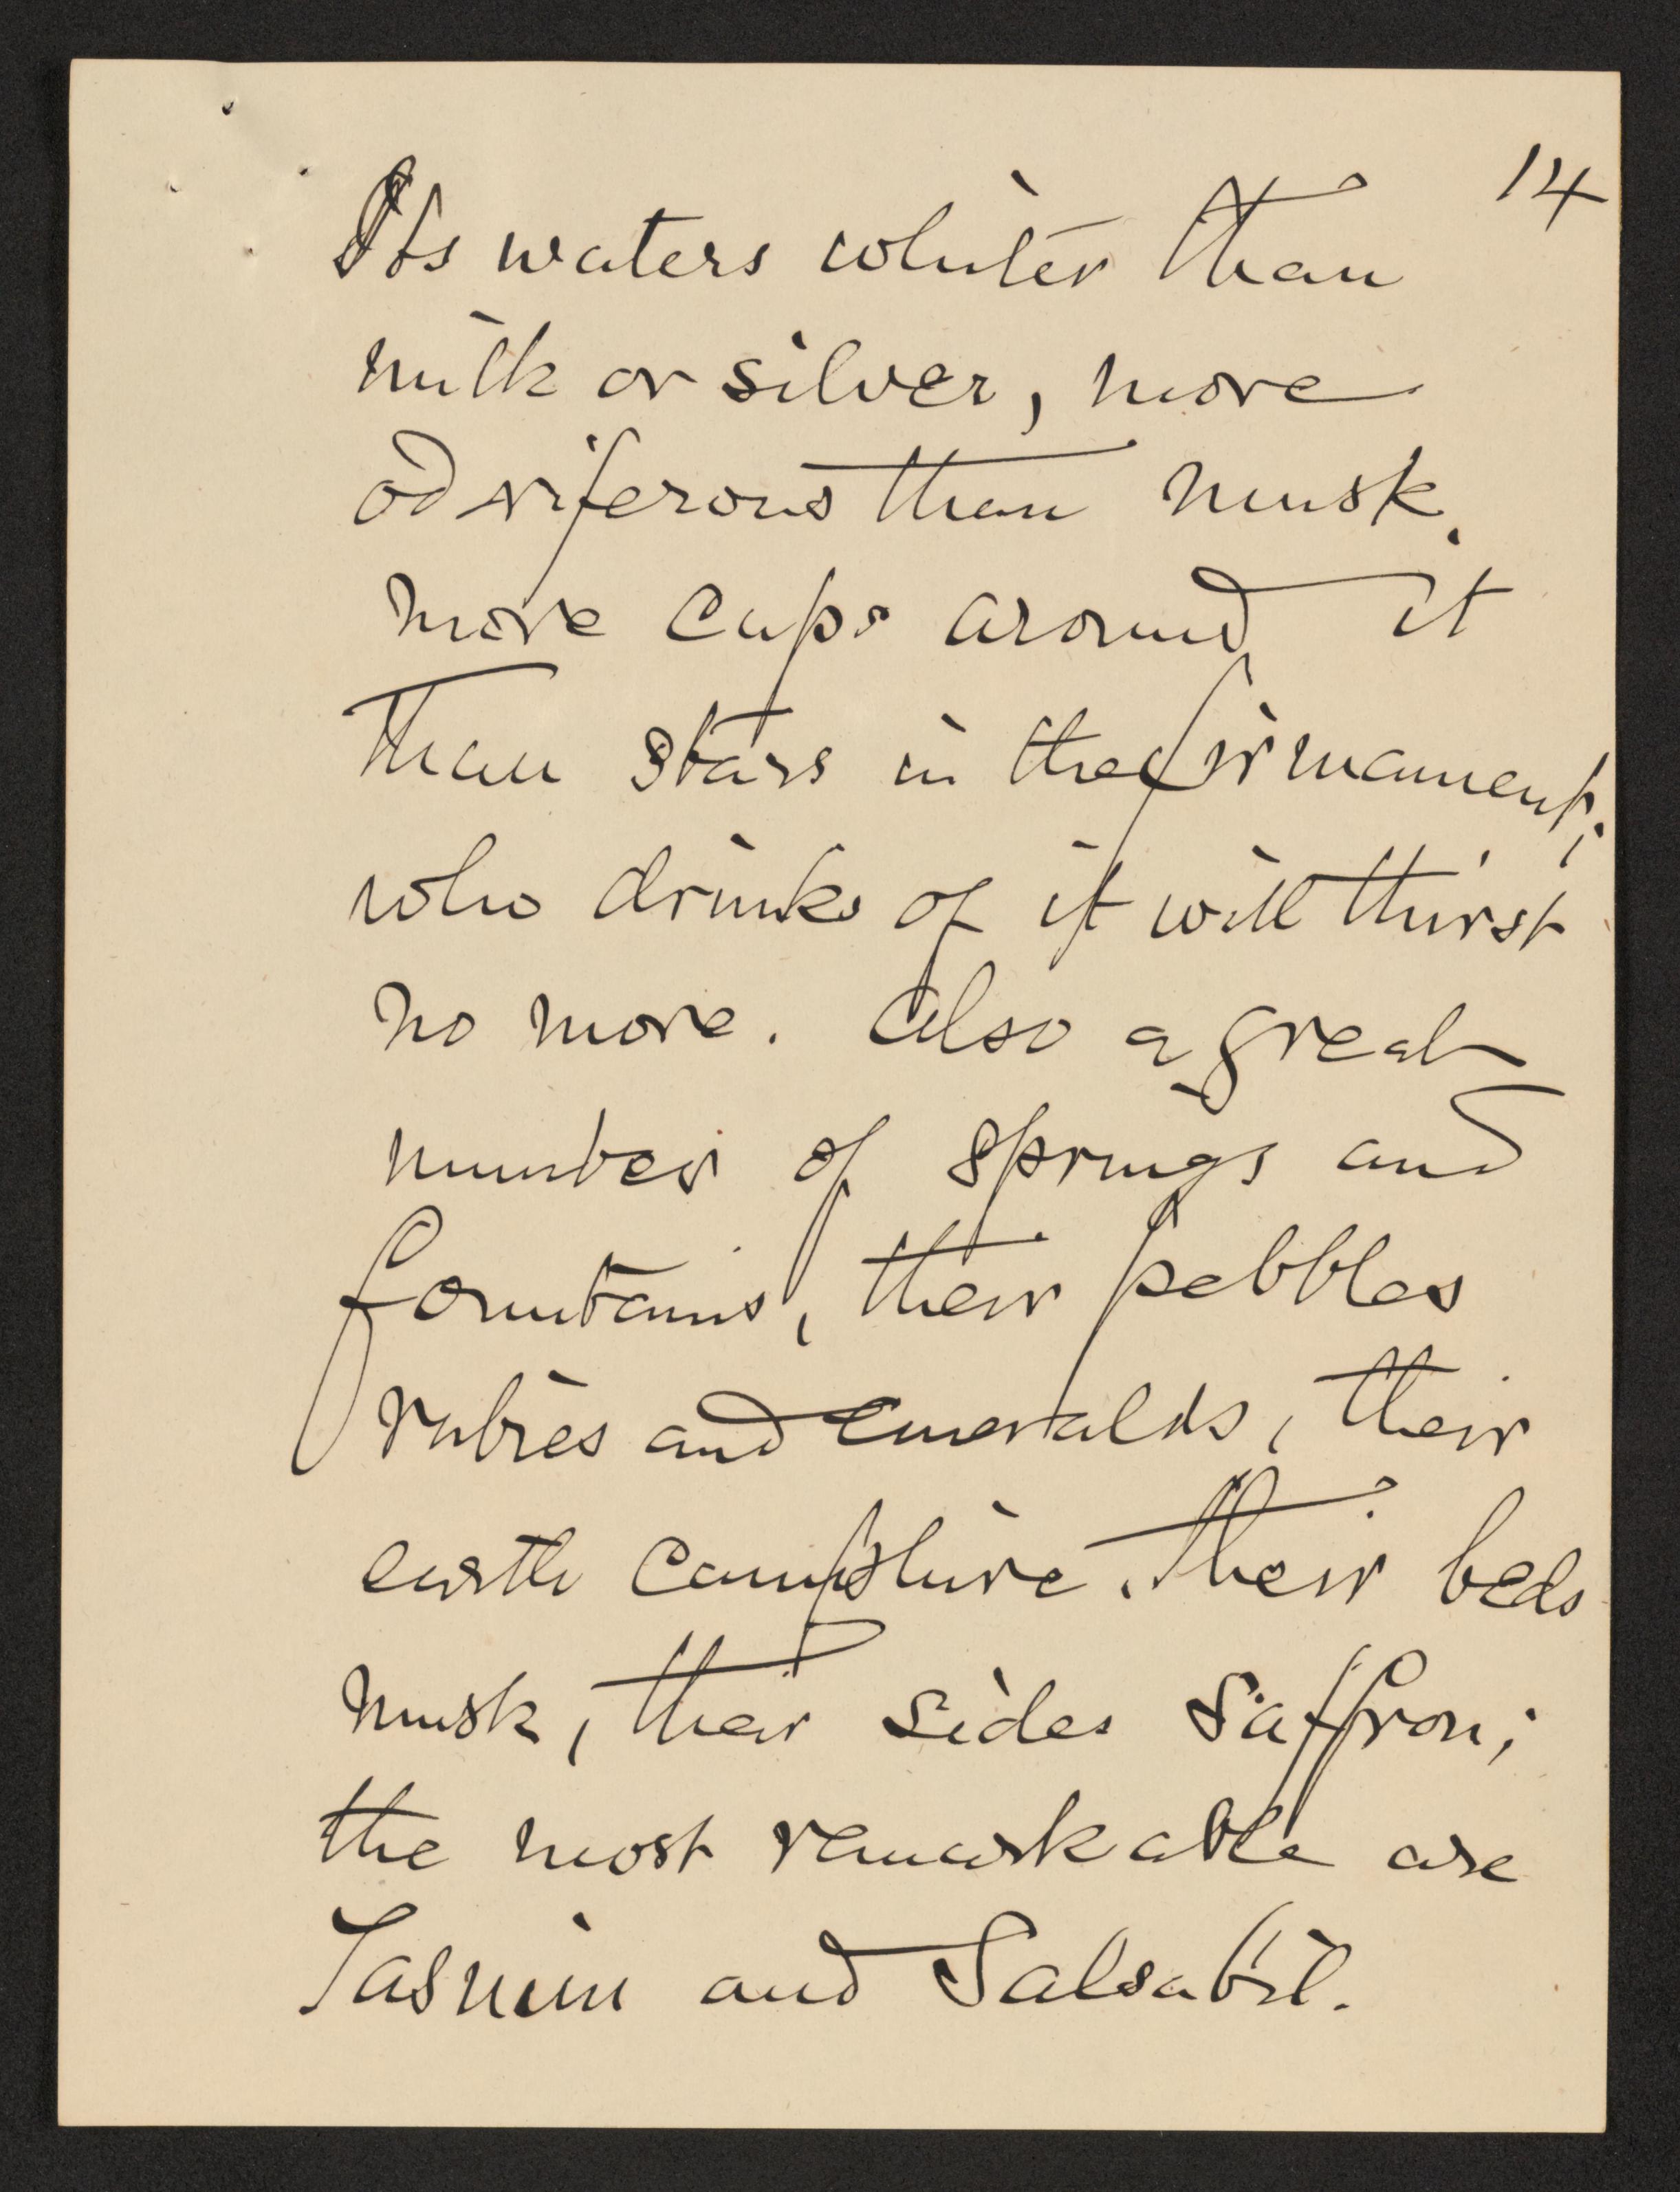 14
Its waters whiter than
milk or silver, more
odoriferous than musk,
more cups around it
than stars in the firmament;
who drinks of it will thirst
no more. Also a great
number of springs and
fountains, their pebbles
rubies and emeralds, their
earth camphire, their beds
musk, their sides saffron;
the most remarkable are
Tasnim and Salsabil.